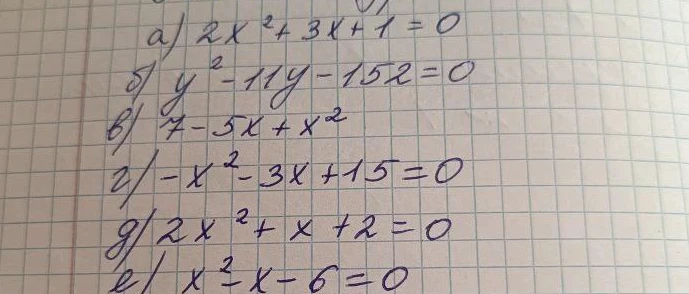 а) 2x² + 3x + 1 = 0
б) y² - 11y - 152 = 0
в) 7 - 5x + x²
г) -x² - 3x + 15 = 0
д) 2x² + x + 2 = 0
е) x² - x - 6 = 0